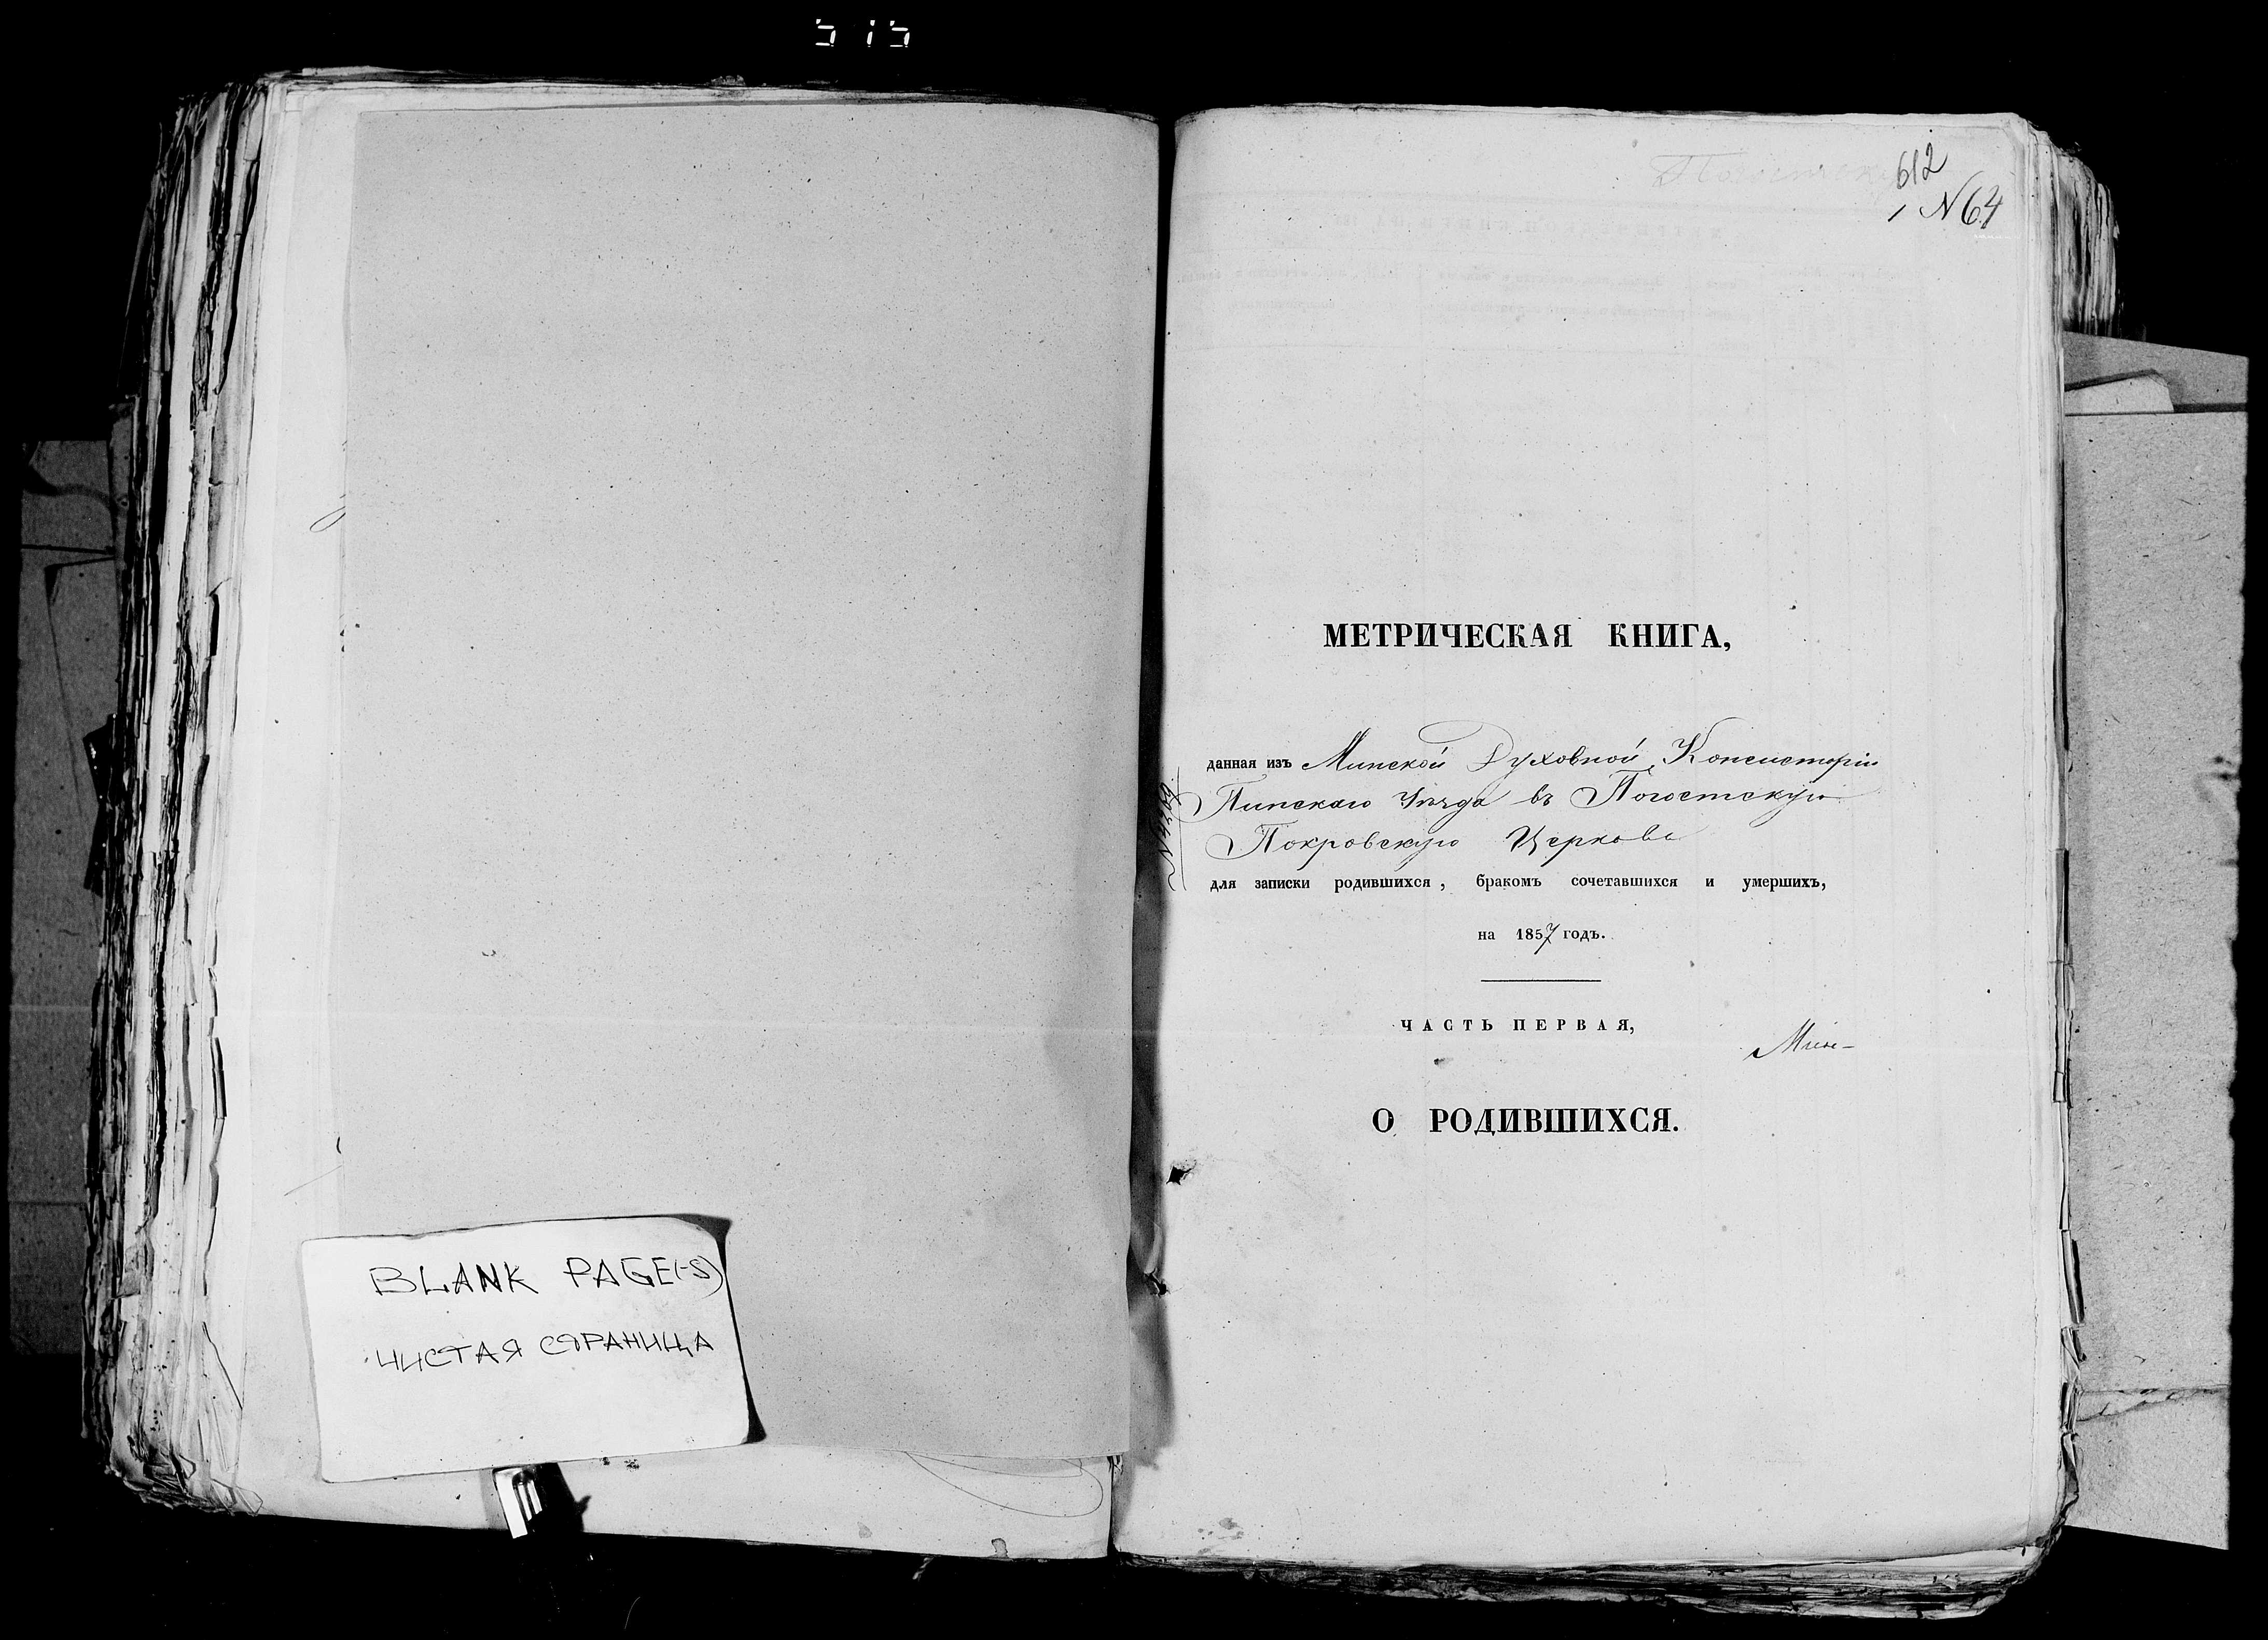 515
BLANK PAGE(-S)
ЧИСТАЯ СТРАНИЦА
612
N64
МЕТРИЧЕСКАЯ КНИГА,
данная изъ Минской Духовной Консисторіи
Пинскаго Уѣзда въ Погостскую
Покровскую Церковь
для записки родившихся, бракомъ сочетавшихся и умершихъ,
на 1857 годъ.
ЧАСТЬ ПЕРВАЯ,
О РОДИВШИХСЯ.